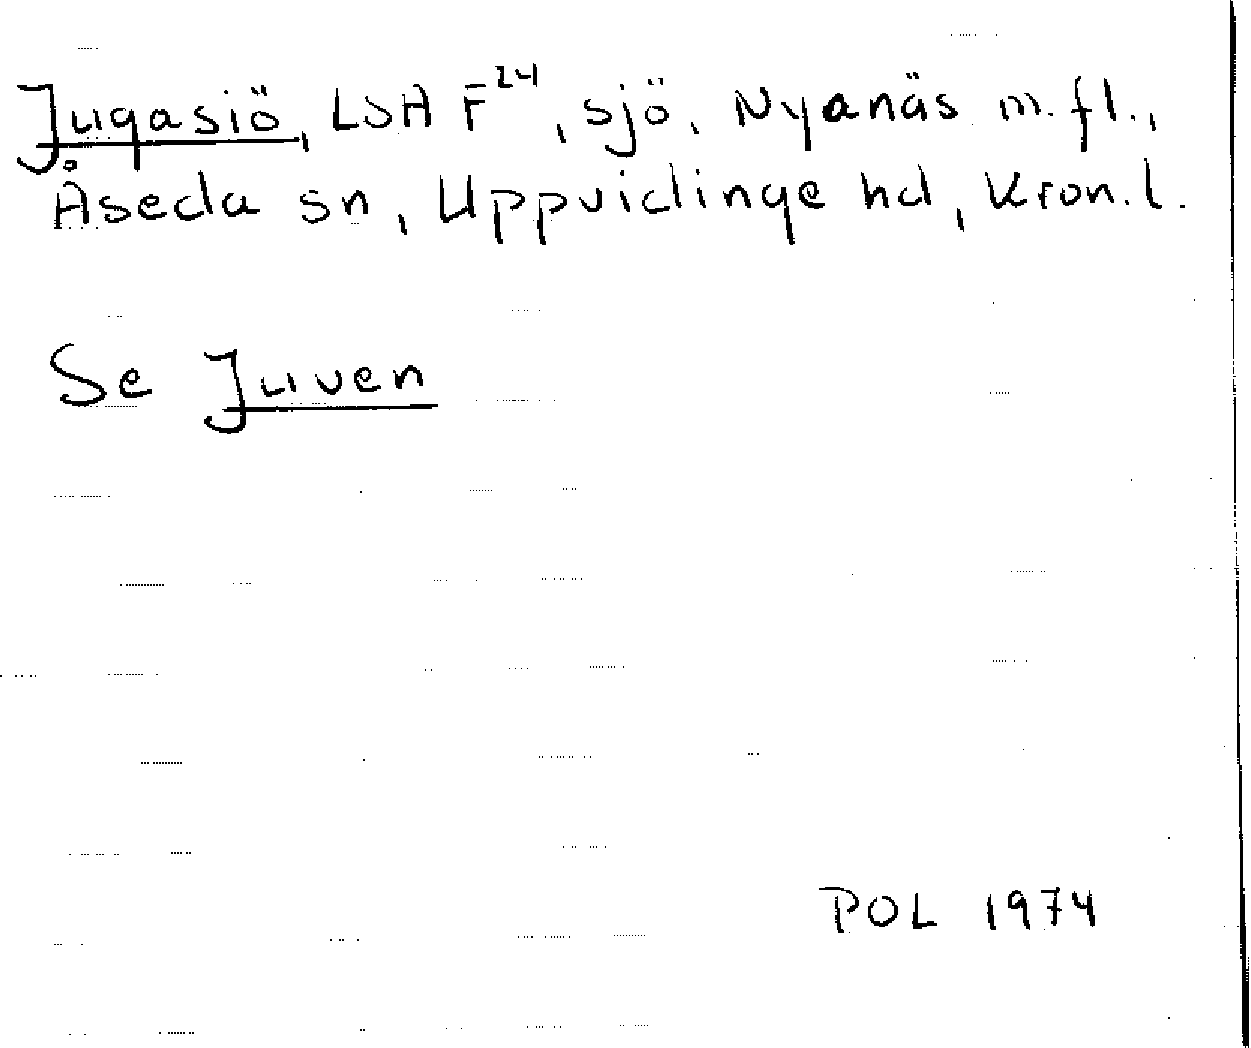 Jugasiö, LSA F²⁴, sjö, Nyanäs m.fl.,
Åseda sn, Uppvidinge hd, Kron. l.
Se Juven
POL 1974